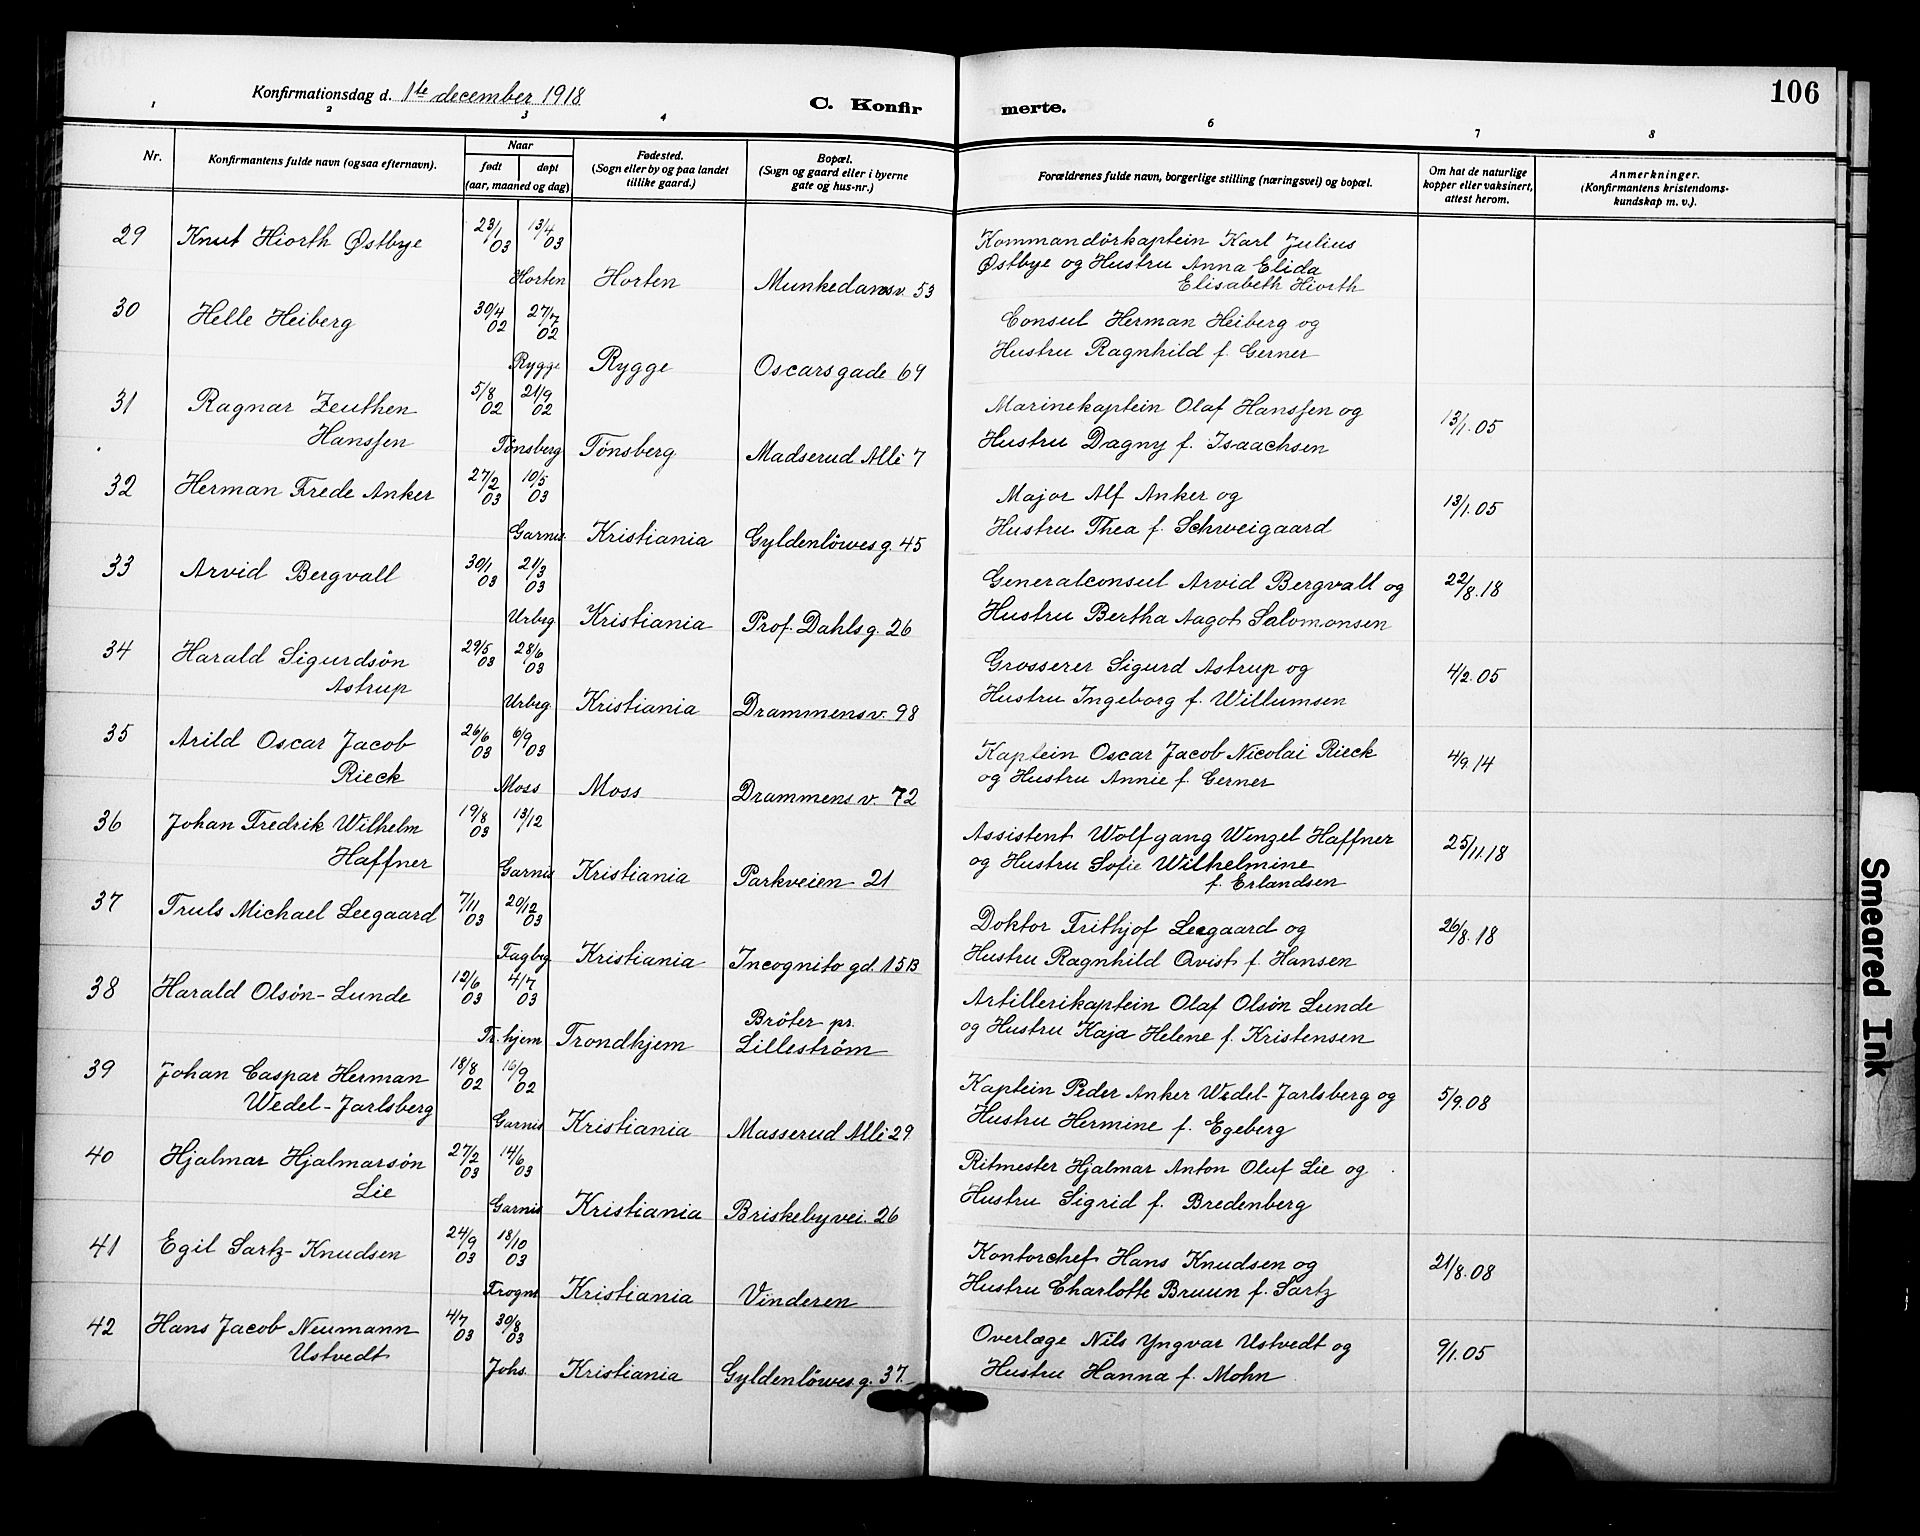 Konfirmationsdag d. 1ste december 1918
C. Konfir merte.
106
1 2 3 4 6 7 8
Nr.
Konfirmantens fulde navn (ogsaa efternavn).
Naar
født døpt
(aar, maaned og dag)
Fødested.
(Sogn eller by og paa landet
tillike gaard.)
Bopæl.
(Sogn og gaard eller i byerne
gate og hus-nr.)
Forældrenes fulde navn, borgerlige stilling (næringsvei) og bopæl.
Om hat de naturlige
kopper eller vaksinert,
attest herom.
Anmerkninger.
(Konfirmantens kristendoms-
kundskap m. v.).
29 Knut Hiorth Østbye 23/1 03 13/4 03 Kommandörkaptein Karl Julius
Horten Horten Munkedamsv. 53 Østbye og Hustru Anna Elida
Elisabeth Hiorth
30 Helle Heiberg 30/4 02 27/7 02 Consul Herman Heiberg og
Rygge Rygge Oscarsgade 69 Hustru Ragnhild f. Gerner
31 Ragnar Zeuthen 5/8 02 21/9 02 Marinekaptein Olaf Hanssen og 13/1.05
Hanssen Tönsberg Tönsberg Madserud Allé 7 Hustru Dagny f. Isaachsen
32 Herman Frede Anker 27/2 03 10/5 03 Major Alf Anker og 13/1.05
Garnis. Kristiania Gyldenlöwesg. 45 Hustru Thea f. Schweigaard
33 Arvid Bergvall 30/1 03 21/3 03 Generalconsul Arvid Bergvall og 22/8.18
Urbg Kristiania Prof. Dahlsg. 26 Hustru Bertha Aagot Salomonsen
34 Harald Sigurdsön 29/5 03 28/6 03 Grosserer Sigurd Astrup og 4/2.05
Astrup Urbg. Kristiania Drammensv. 98 Hustru Ingeborg f. Willumsen
35 Arild Oscar Jacob 26/6 03 6/9 03 Kaptein Oscar Jacob Nicolai Rieck 4/9.14
Rieck Moss Moss Drammensv. 72 og Hustru Annie f. Gerner
36 Johan Fredrik Wilhelm 19/8 03 13/12 Assistent Wolfgang Wenzel Haffner 25/11.18
Haffner Garnis Kristiania Parkveien 21 og Hustru Sofie Wilhelmine
f. Erlandsen
37 Truls Michael Leegaard 7/11 03 20/12 03 Doktor Frithjof Leegaard og 26/8.18
Fagbg Kristiania Incognito gd. 15B Hustru Ragnhild Qvist f. Hansen
38 Harald Olsön-Lunde 12/6 03 4/7 03 Artillerikaptein Olaf Olsön Lunde
Tr.hjem Trondhjem Bröter pr. Lilleström og Hustru Kaja Helene f. Kristensen
39 Johan Caspar Herman 18/8 02 16/9 02 Kaptein Peder Anker Wedel-Jarlsberg og 5/9.08
Wedel-Jarlsberg Garnis Kristiania Masserud Allé 29 Hustru Hermine f. Egeberg
40 Hjalmar Hjalmarsön 27/2 03 14/6 03 Ritmester Hjalmar Anton Oluf Lie og
Lie Garnis Kristiania Briskebyvei. 26 Hustru Sigrid f. Bredenberg
41 Egil Sartz-Knudsen 24/9 03 18/10 03 Kontorchef Hans Knudsen og 21/8.08
Frogner Kristiania Vinderen Hustru Charlotte Bruun f. Sartz
42 Hans Jacob Neumann 4/7 03 30/8 03 Overlæge Nils Yngvar Ustvedt og 9/1.05
Ustvedt Johs. Kristiania Gyldenlöwesg. 37. Hustru Hanna f. Mohn
Smeared Ink